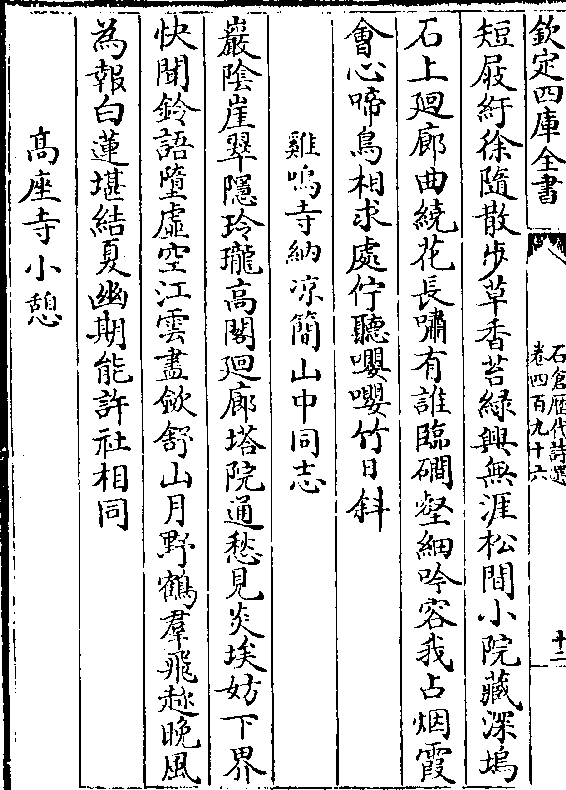 欽定四庫全書
石倉歷代詩選
卷四百九十六
十二
短屐紆徐隨散步草香苔綠興無涯松間小院藏深塢
石上廻廊曲繞花長嘯有誰臨磵壑細吟容我占烟霞
會心啼鳥相求處佇聽嚶嚶竹日斜
雞鳴寺納涼簡山中同志
巖陰崖翠隱玲瓏高閣廻廊塔院通愁見炎埃妨下界
快聞鈴語墮虛空江雲畫歛舒山月野鶴羣飛趂晚風
為報白蓮堪結夏幽期能許社相同
高座寺小憩